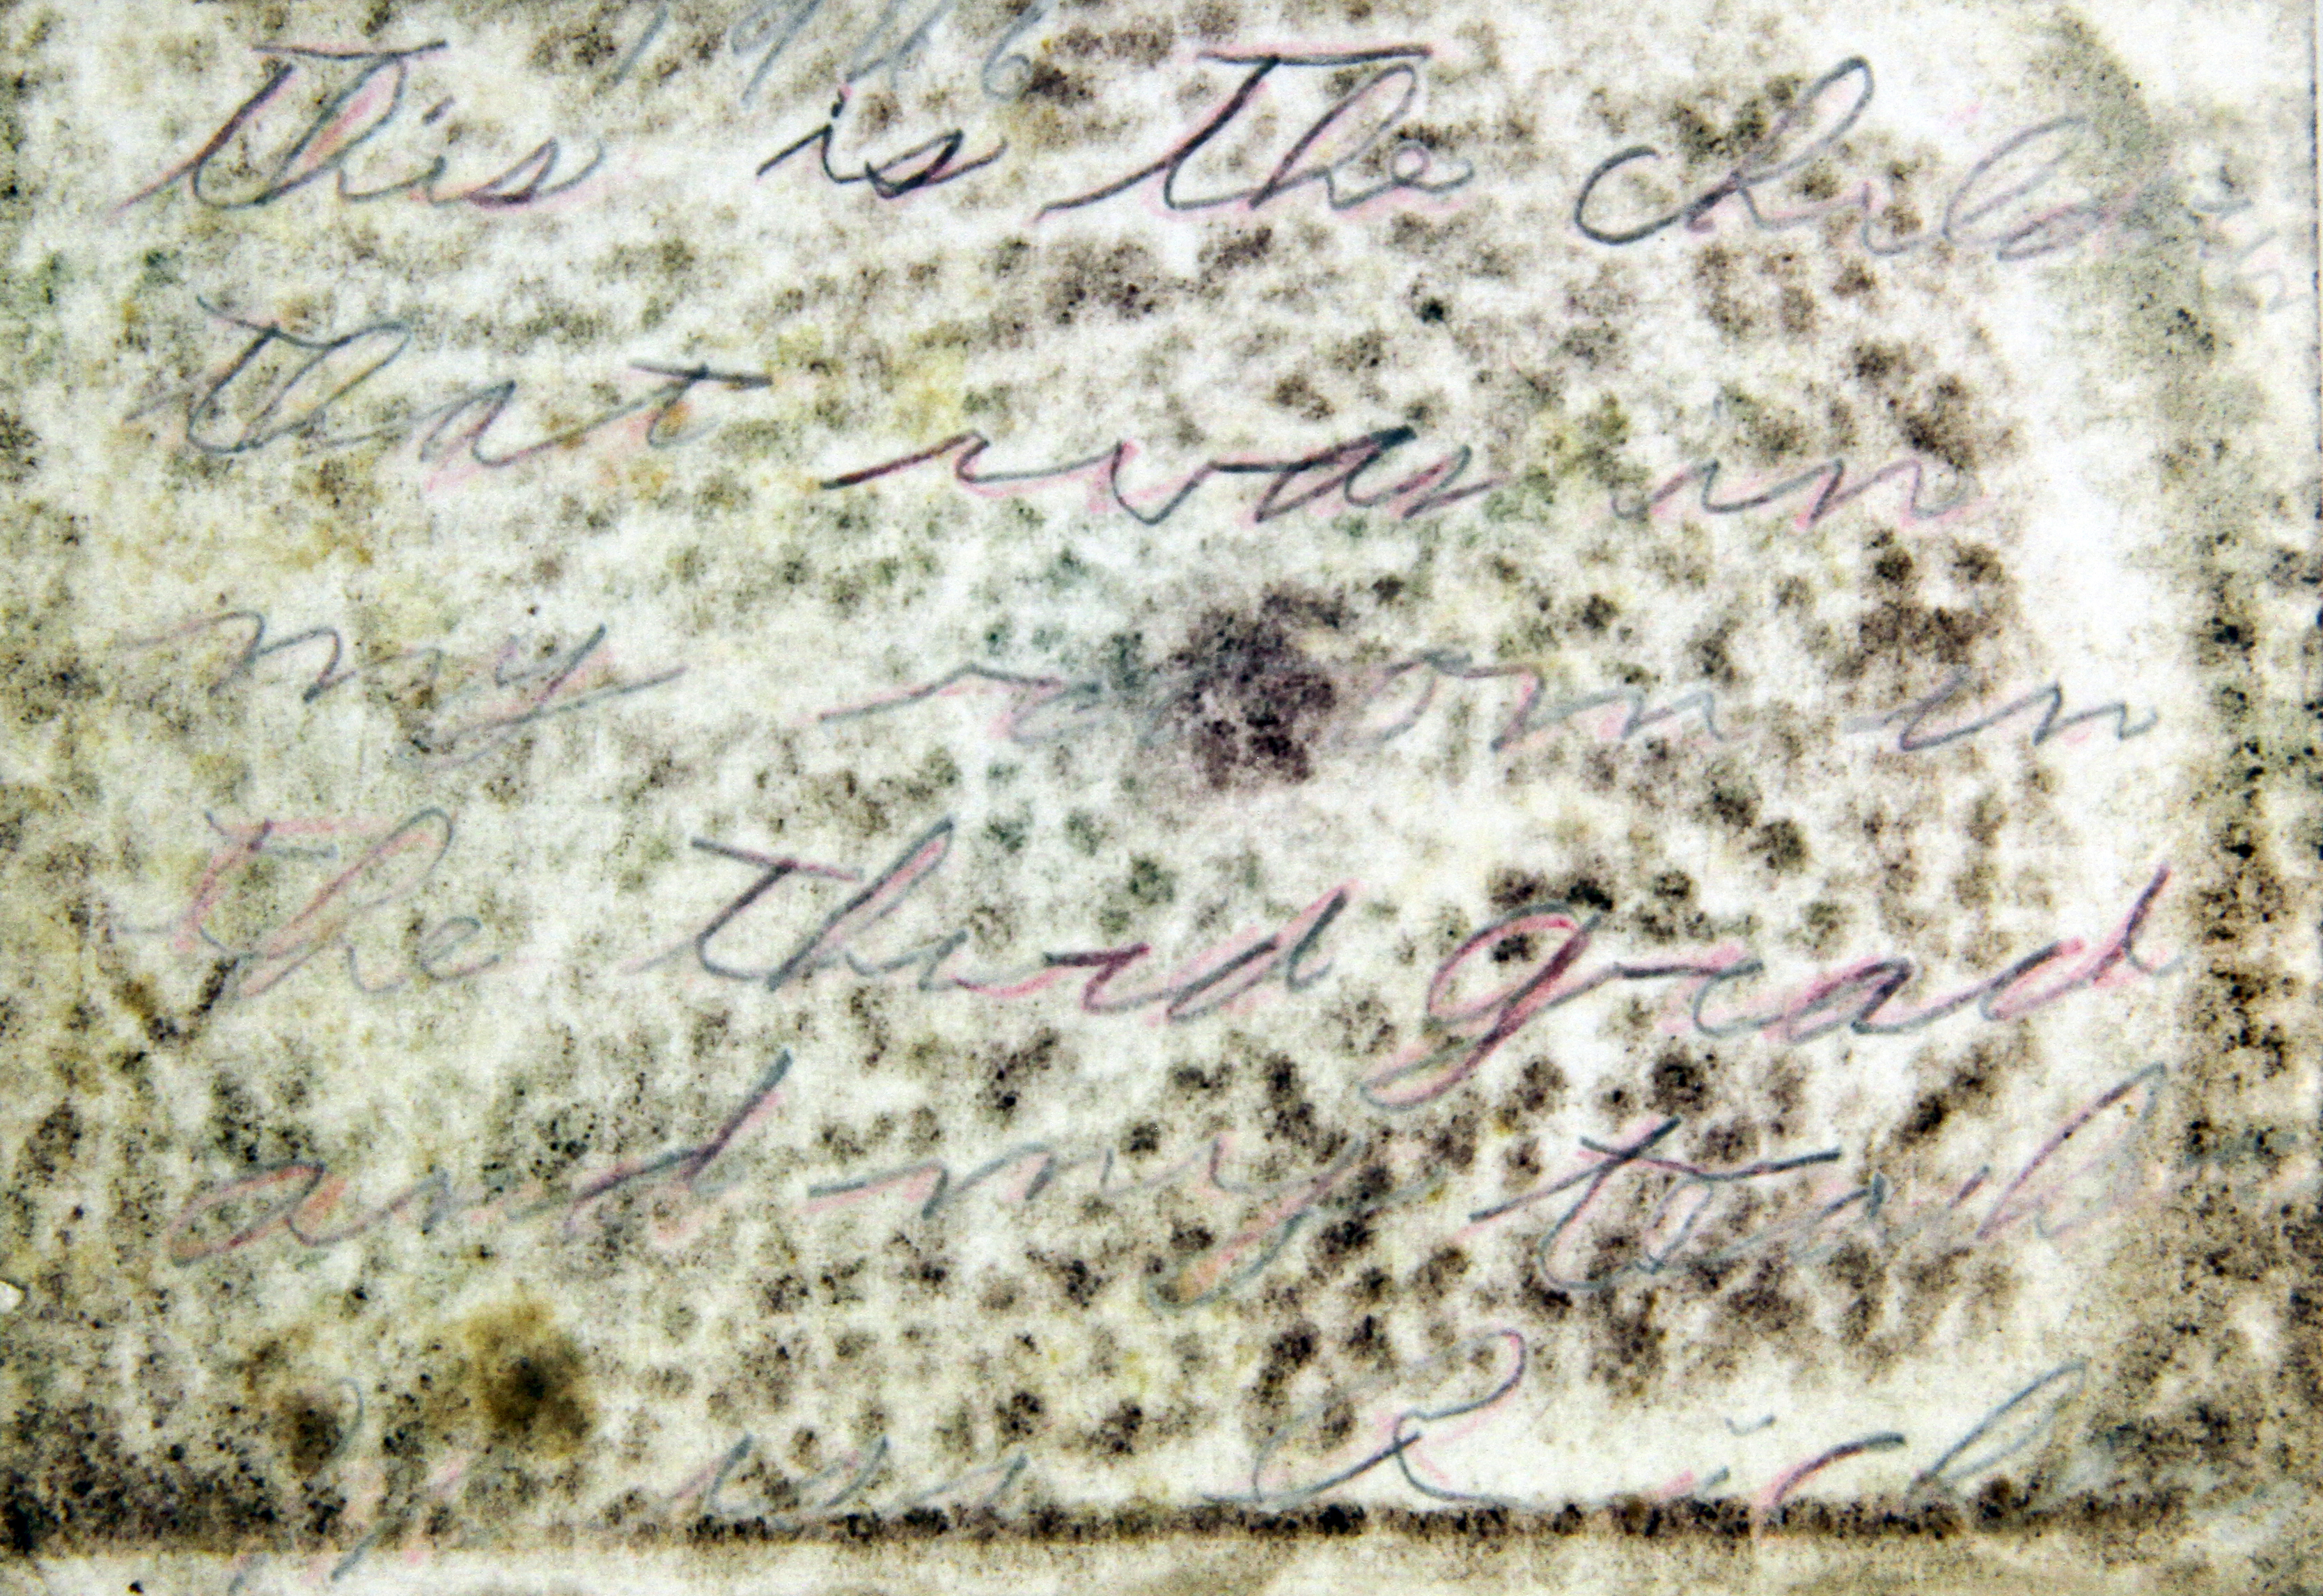 1966
This is the children
that was in
my room in
the third grad
and my teach
Miss Rich